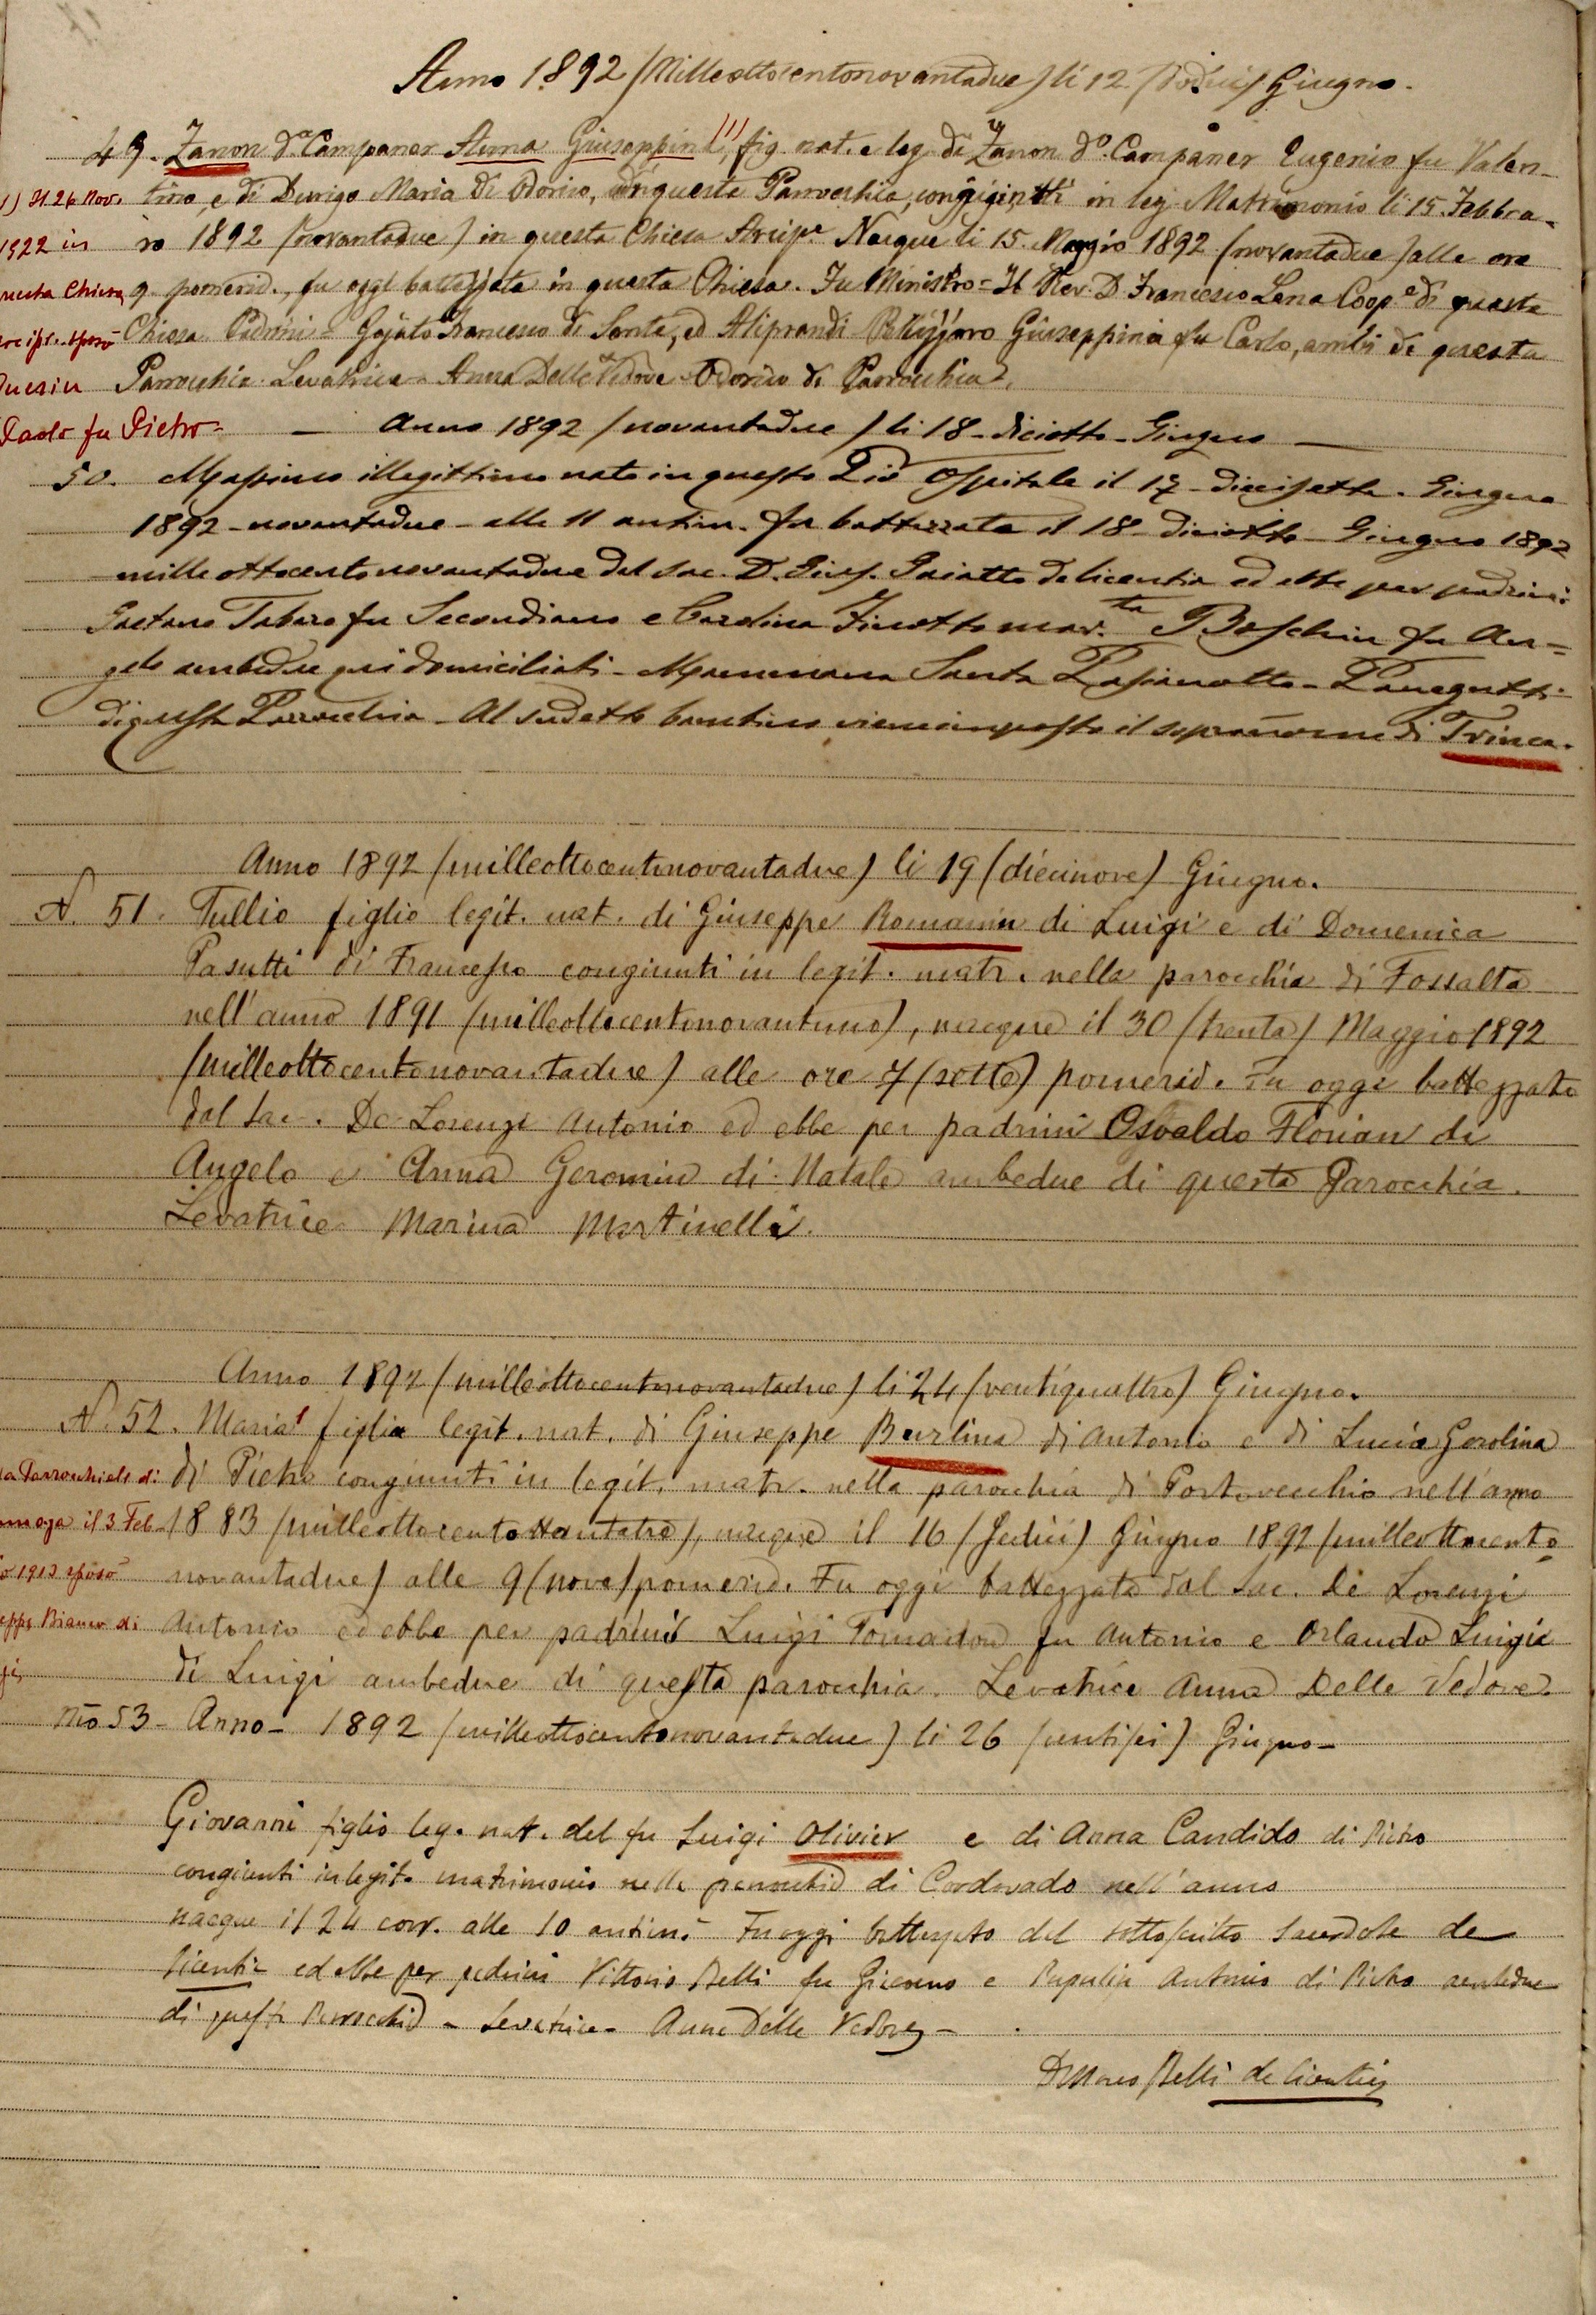 Anno 1892 (Milleottocentonovantadue) li 12 (Dodici) Giugno.
49. Zanon d.a Campaner Anna Giuseppina (1), fig. nat. e leg. di Zanon d.o Campaner Eugenio fu Valen-
tino, e di Durigo Maria di Odorico, di questa Parrocchia, congiunti in leg. Matrimonio li 15 Febbra-
io 1892 (novantadue) in questa Chiesa Arcip.e Nacque li 15 Maggio 1892 (novantadue) alle ore
9 pomerid., fu oggi battezzata in questa Chiesa. Fu Ministro = Il Rev. D. Francesco Lena Coop.e di questa
Chiesa. Padrini = Gajato Francesco di Sante, ed Aliprandi Giuseppina fu Carlo, ambi di questa
Parrocchia. Levatrice = Anna Delle Vedove Odorico di Parrocchia.
1) Il 26 Nov.
1922 in
questa Chiesa
arcipr. sposò
Paolo fu Pietro =
— Anno 1892 (novantadue) li 18 - diciotto - Giugno —
50. Massimo illegittimo nato in questo Pio Ospitale il 17 - diecisette - Giugno
1892 - novantadue - alle 11 antim. fu battezzato il 18 - diciotto - Giugno 1892
milleottocentonovantadue dal sac. D. Gius. de licentia ed ebbe per padrini
Gaetano Tabaro fu Secondiano e Carolina Finotto mar.ta Boschin fu An=
gelo ambedue qui domiciliati - Mammana Santa Pasianotto - Panegutti
di questa Parrocchia - Al sudetto bambino viene imposto il soprañome di Trinca.
Anno 1892 (milleottocentonovantadue) li 19 (diecinove) Giugno.
N. 51. Tullio figlio legit. nat. di Giuseppe Romanin di Luigi e di Domenica
Pasutti di Francesco congiunti in legit. matr. nella parocchia di Fossalta
nell'anno 1891 (milleottocentonovantuno), nacque il 30 (trenta) Maggio 1892
(milleottocentonovantadue) alle ore 7 (sette) pomerid. Fu oggi battezzato
dal Sac. De Lorenzi Antonio ed ebbe per padrini Osvaldo Florian di
Angelo e Anna Geromin di Natale ambedue di questa Parocchia.
Levatrice Marina Martinelli.
Anno 1892 (milleottocentonovantadue) li 24 (ventiquattro) Giugno.
N. 52. Maria figlia legit. nat. di Giuseppe Burlina di Antonio e di Lucia Gerolina
di Pietro congiunti in legit. matr. nella parocchia di Portovecchio nell'anno
1883 (milleottocentottantatre), nacque il 16 (sedici) Giugno 1892 (milleottocento=
novantadue) alle 9 (nove) pomerid. Fu oggi battezzata dal Sac. De Lorenzi
Antonio ed ebbe per padrini Luigi Tomadon fu Antonio e Orlando Luigia
di Luigi ambedue di questa parocchia. Levatrice Anna Delle Vedove.
Parrocchiale di
il 3 Feb
1913 sposò
Bianco di
Nro 53 - Anno - 1892 (milleottocentonovantadue) li 26 (ventisei) Giugno -
Giovanni figlio leg. nat. del fu Luigi Olivier e di Anna Candido di Pietro
congiunti in legit. matrimonio nella parrocchia di Cordovado nell'anno
nacque il 24 corr. alle 10 antim. Fu oggi battezzato dal sottoscritto Sacerdote de
licentia ed ebbe per padrini Vittorio Belli fu Giacomo e Antonio di Pietro ambedue
di questa Parrocchia - Levatrice - Anna Delle Vedove -
D. Marco Belli de licentia